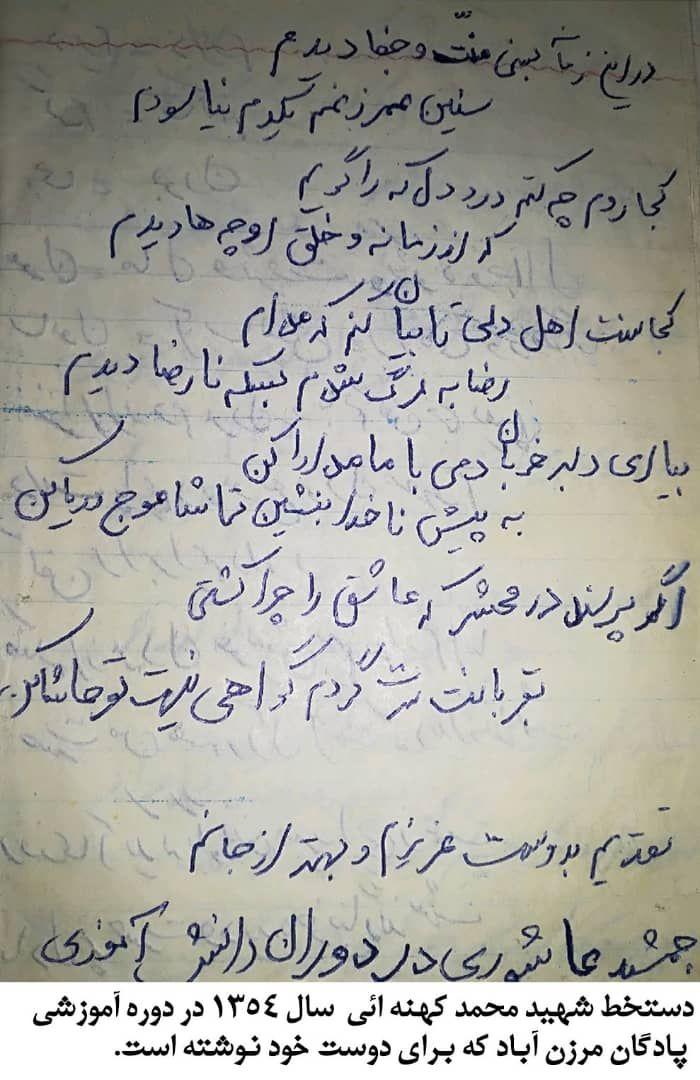 در این زمانه بسی منّت و جفا دیدم
سنین عمر ز غم یکدم نیاسودم
کجا روم چه کنم درد دل که را گویم
که از زمانه و خلق او چه ها دیدم
کجاست اهل دلی تا بیان کنم که مدام
رضا به مرگ شدم بسکه نارضا دیدم
بیا ای دلبر خوبان دمی با ما مدارا کن
به پیش ناخدا بنشین تماشا موج دریا کن
اگر پرسند در محشر که عاشق را چرا کشتی
بقربانت گردم گواهی نیست تو حاشا کن.
تقدیم بدوست عزیزم و بهتر از جانم
جمشید عاشوری در دوران دانش آموزی
دستخط شهید محمد کهنه ائی سال ١٣٥٤ در دوره آموزشی
پادگان مرزن آباد که برای دوست خود نوشته است.